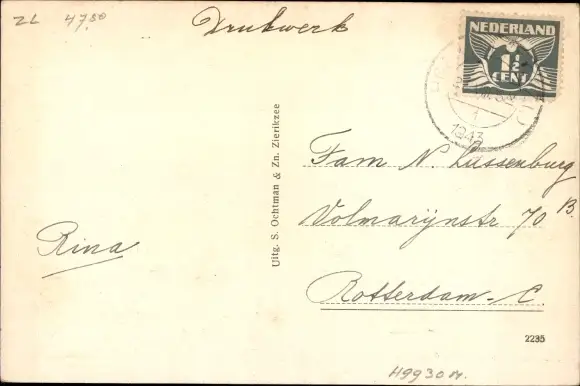 ZL 4750
Drukwerk
NEDERLAND
1½
CENT
1
1943
Fam N. Lussenburg
Volmarijnstr 70 B.
Rotterdam-C.
Rina
Uitg. S. Ochtman & Zn. Zierikzee
2235
H9930M.